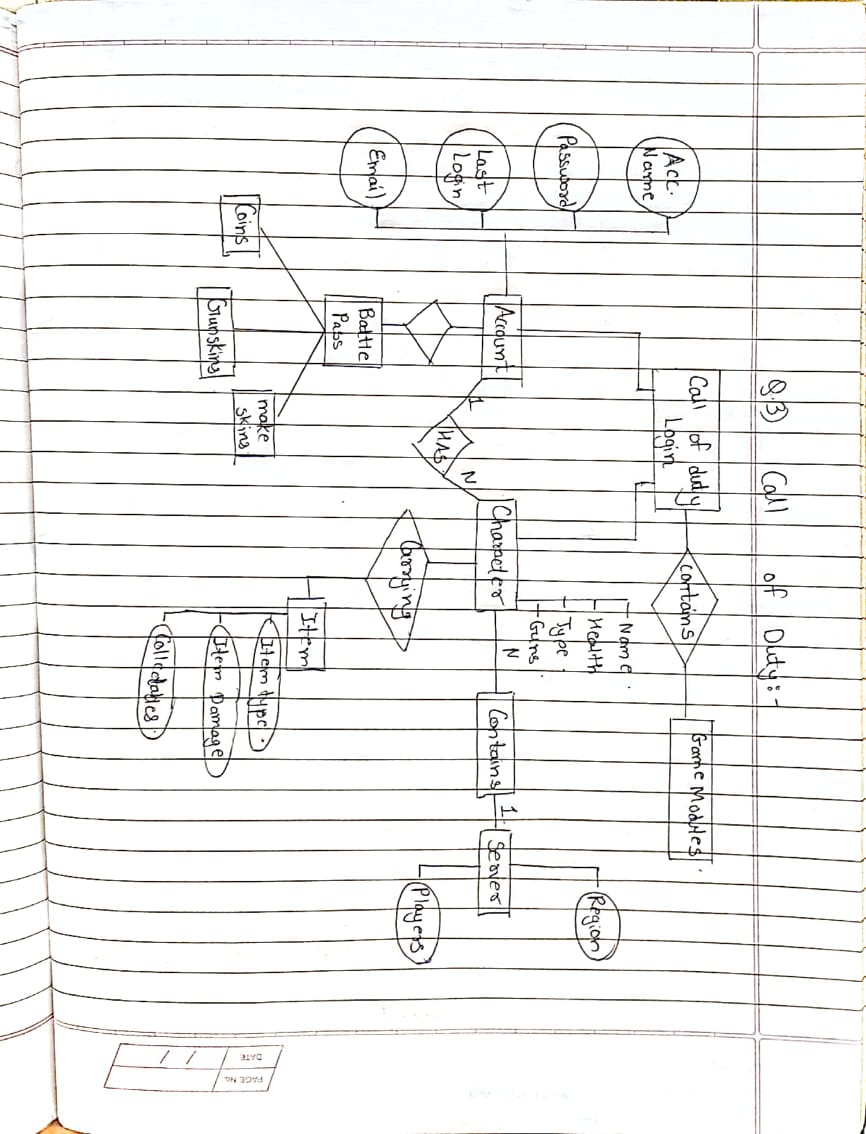 Q.3) Call of Duty:-
Call of duty
Login
contains
Game Modules
Acc.
Name
Password
Last
Login
Email
Name
Health
Type
Guns
Region
Account
1
HAS
N
Character
N
Contains
1
Server
Players
Carrying
Battle
Pass
Coins
Gunskins
make
skins
Item
Item type
Item Damage
Collectables
PAGE No.
DATE / /